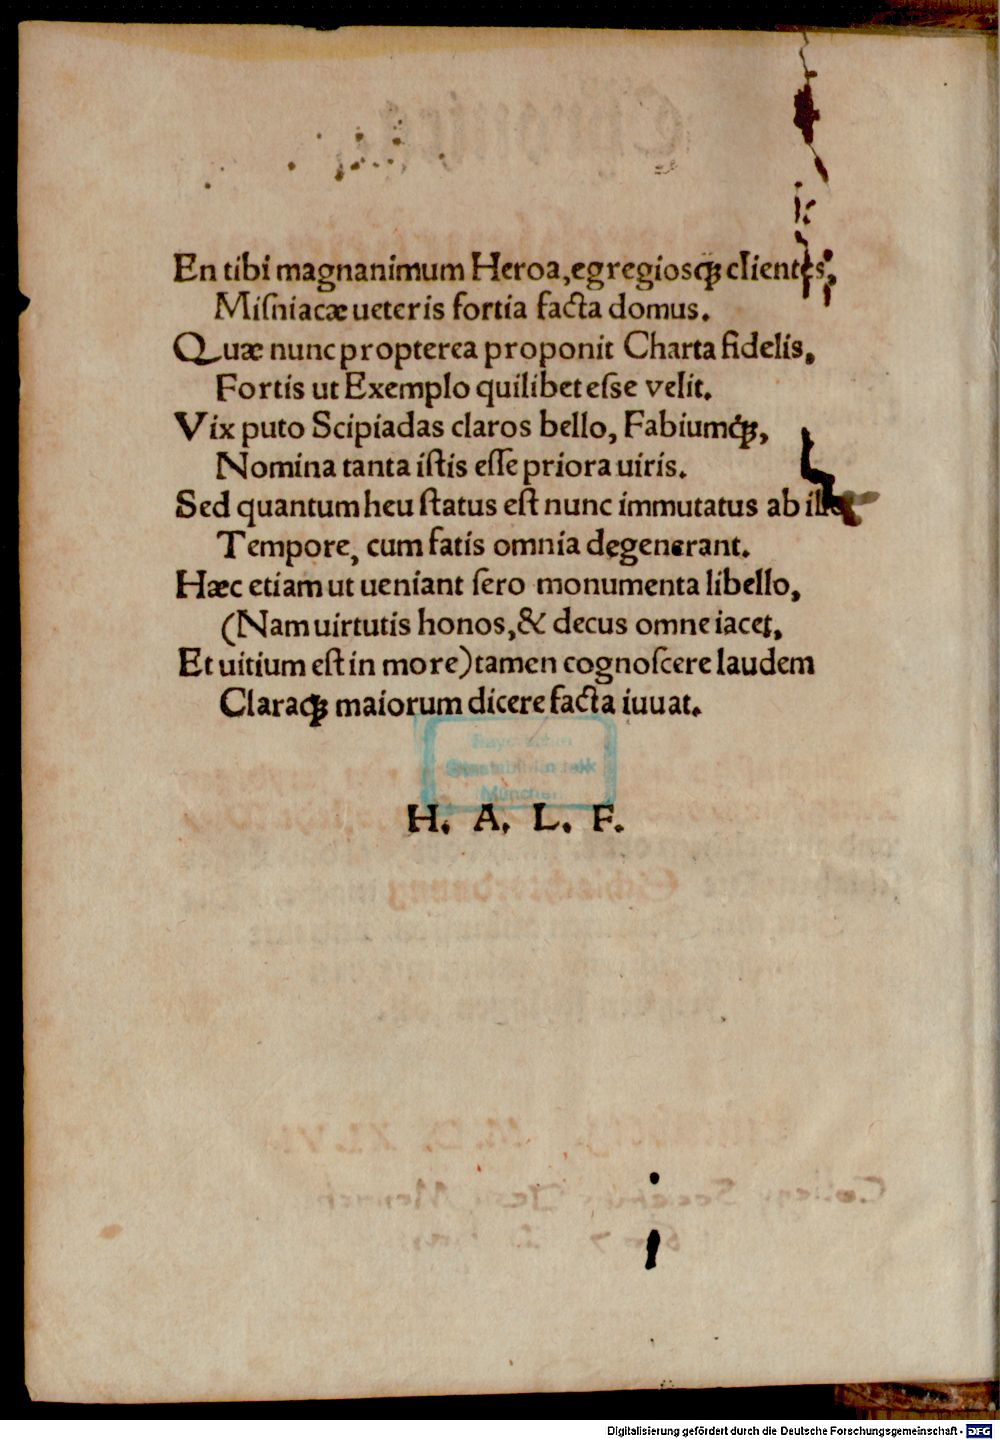 En tibi magnanimum Heroa, egregiosqꝫ clientes,
Miſniacæ ueteris fortia facta domus.
Quæ nunc propterea proponit Charta fidelis,
Fortis ut Exemplo quilibet eſse velit.
Vix puto Scipiadas claros bello, Fabiumqꝫ,
Nomina tanta iſtis eſſe priora uiris.
Sed quantum heu ſtatus eſt nunc immutatus ab illo
Tempore, cum fatis omnia degenerant.
Hæc etiam ut ueniant ſero monumenta libello,
(Nam uirtutis honos, & decus omne iacet,
Et uitium eſt in more) tamen cognoſcere laudem
Claraqꝫ maiorum dicere facta iuuat.
Bayerische
Staatsbibliothek
München
H. A. L. F.
Digitalisierung gefördert durch die Deutsche Forschungsgemeinschaft - DFG